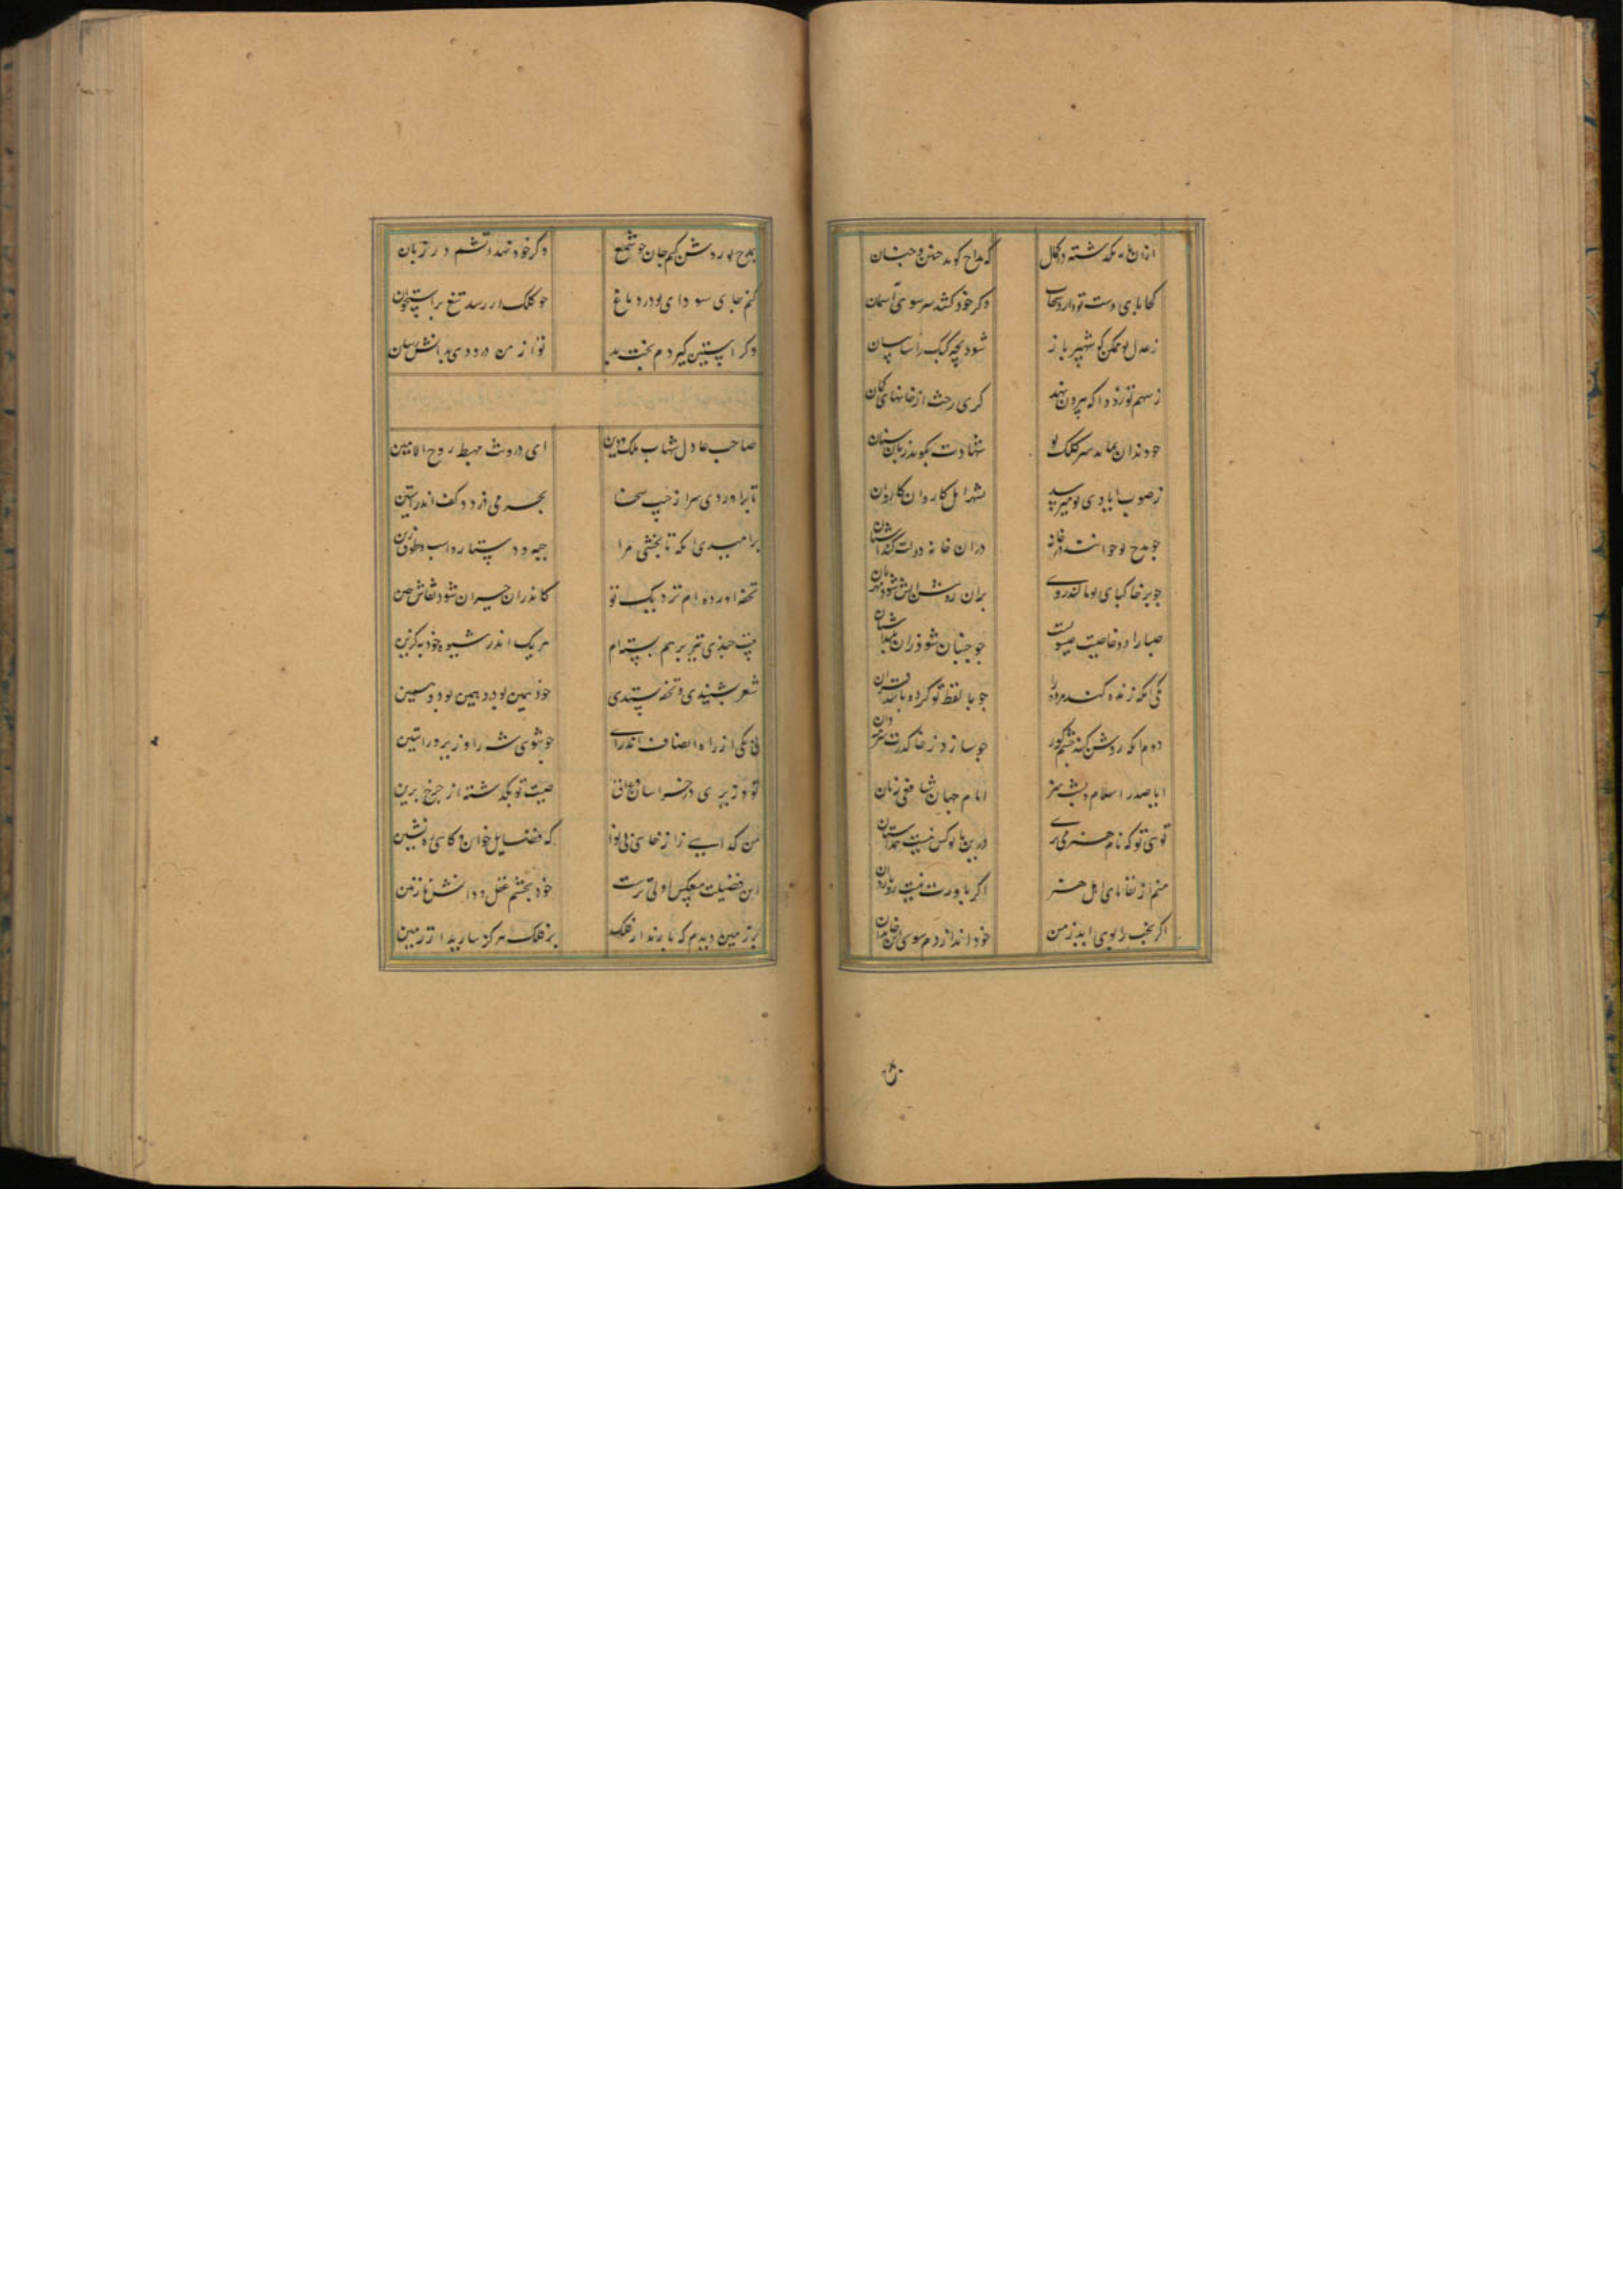 ازان بگذشته درکمال که مداح گوید چنین و چنان
کجا پای دست تو دارد سحاب وکر خود کشد سر سوی آسمان
ز عدل تو ممکن که شهپر باز شود بچه کبک را سایبان
ز سهم تو زودا که بیرون نهد کری رخت از خانهای کمان
چو دندان نماید سر کلک تو شهادت بگوید زبان سنان
ز صوب ایادی تو میرسد بشهر امل کاروان کاروان
چو مدح تو خوانند در خانه دران خانه دولت کند آشیان
چو بر خاک پای تو مالند روی بران روشن
صبا را دو خاصیت عیسویست چو جنبان شود زان
یکی انکه زنده کند مرده را چو با لفظ تو کرده باشد قران
دوم انکه روشن کند چشم کور چو سازد ز خاک درت سرمه دان
ایا صدر اسلام و پشت هنر امام جهان شافعی زمان
توئی تو که نام هنر می بری درین با تو کس نیست همداستان
منم از بقایای اهل هنر اگر باورت نیست
اگر نخب را بوی اید ز من خود اندازدم سوی این خاندان
بمدح تو روشن کنم جان چو شمع وکر خود نهد اتشم در زبان
کنم جای سودای تو در دماغ چو کلک ار رسد تیغ بر استخوان
وکر استین گیردم بخت بد تو از من درودی بدانش رسان
صاحب عادل شهاب ملک و دین ای درونت مهبط روح الامین
تا براوردی سر از جیب سخا بحر می لرزد و کف اندر استین
بر امید انکه تا بخشی مرا جبه و دستار و اسب و طوق زین
تحفه اورده ام نزدیک تو کاندران حیران شود نقاش چین
بیت چندی تیز برهم بسته ام هر یک اندر شیوه خود به گزین
شعر بشنیدی و تحفه بستدی خود همین بود و همین بود و همین
نی یکی از راه انصاف اندرای چو توی شه را وزیر راستین
تو وزیری در خراسان و عراق صیت تو بگذشته از چرخ برین
من گدایی زاز خایی بی نوا که فضایل خوان و گاهی ره نشین
این فضیلت معکس اولی ترست خود بچشم عقل و دانش باز بین
بر زمین دیدم که بارند از فلک بر فلک هرگز نبارید از زمین